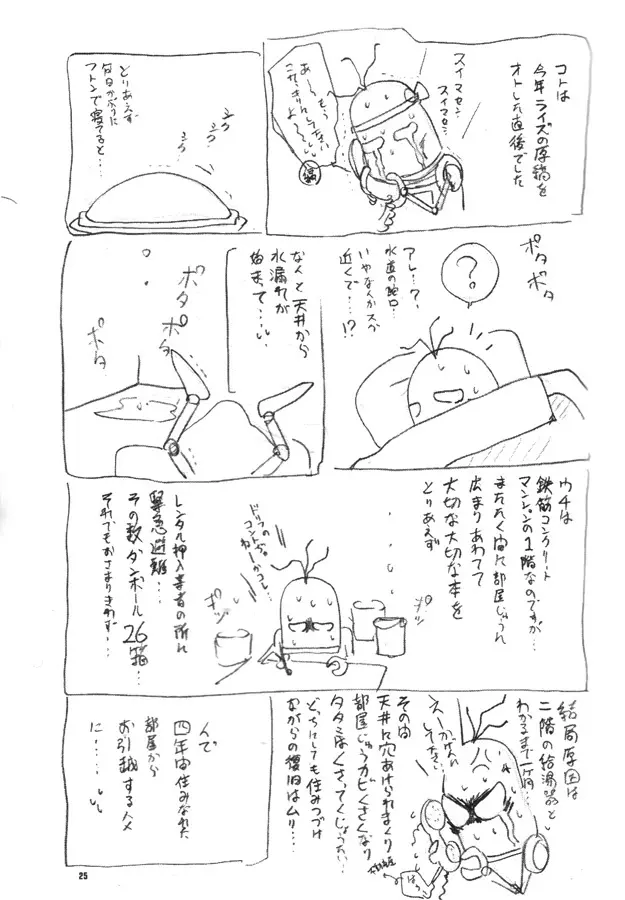 コトは
今年ライズの原稿を
オトした直後でした
スイマセン
スイマセン…
あーもう
これっきりにしなさい
よー
とりあえず
何日かぶりに
フトンで寝てると…
ポタ
ポタ
?
アレ…?
水道の蛇口…
いやなんか
近くで…!?
なんと天井から
水漏れが
始まって……
ポタ
ポタ
ポタ
ウチは
鉄筋コンクリート
マンションの1階なのですが…
またたく間に部屋じゅうに
広まりあわてて
大切な大切な本を
とりあえず
ポッ
ドリフの
コントかコレ…
ポッ
レンタル押入業者の所に
緊急避難…
その数ダンボール26箱…
それでもおさまりきらず…
結局原因は
二階の給湯器と
わかるまで一ヶ月…
その間
天井に穴あけられまくり
部屋じゅうカビくさくなり
タタミはくさってくじょうたい…
どっちにしても住みつづけ
ながらの復旧はムリ…
んで
四年間住みなれた
部屋から
お引越するハメ
に……
25